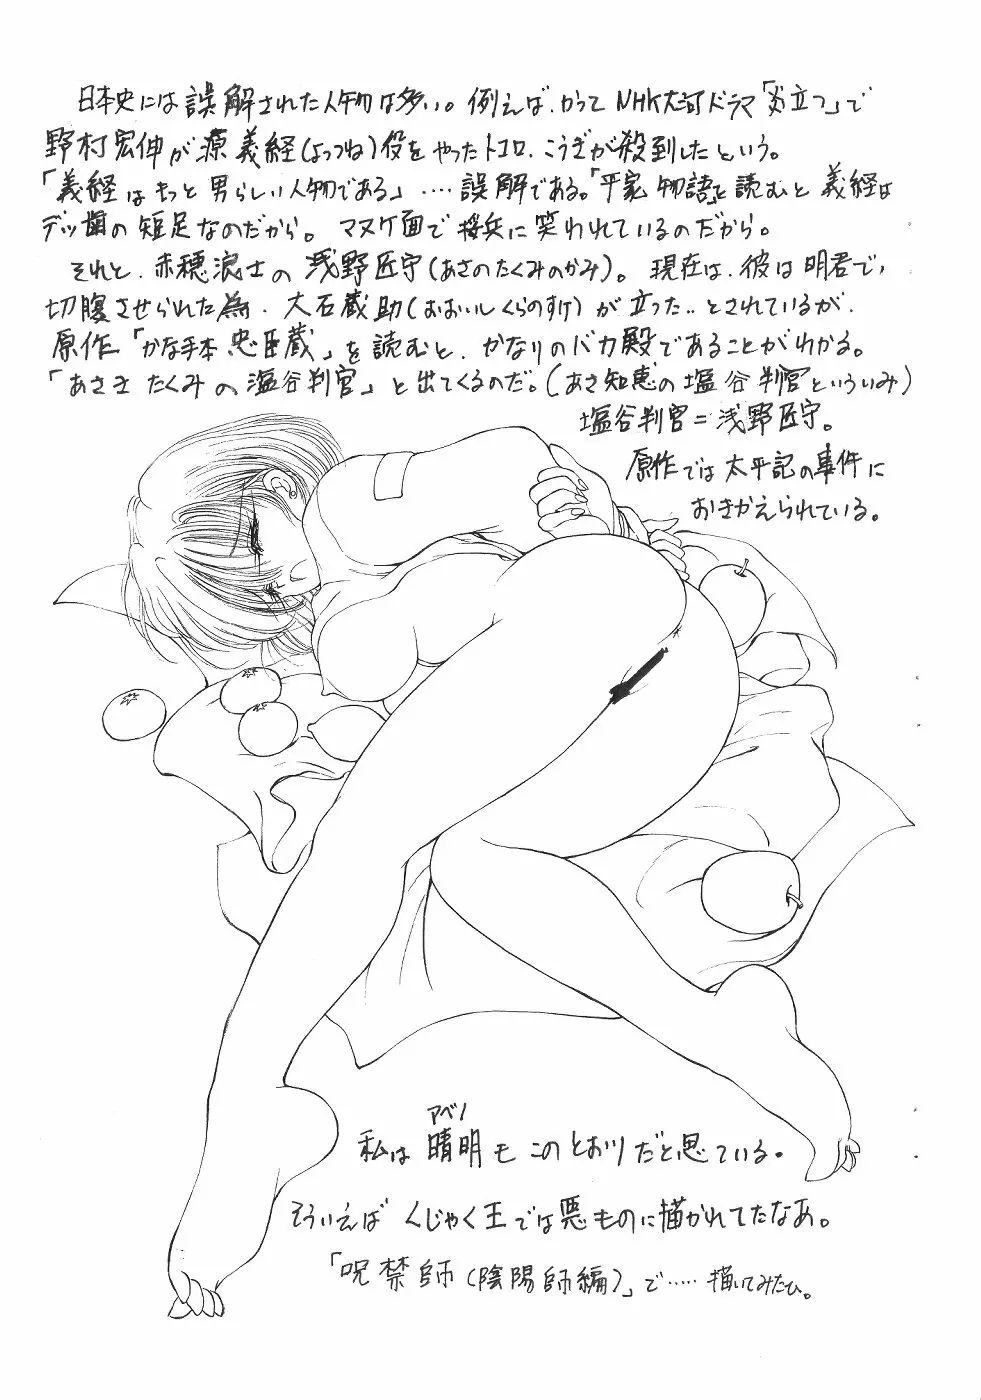 日本史には誤解された人物は多い。例えば、かつてNHK大河ドラマ「炎立つ」で
野村宏伸が源義経(よしつね)役をやったトコロ、こうぎが殺到したという。
「義経はもっと男らしい人物である」‥‥誤解である。「平家物語」を読むと義経は
デッ歯の短足なのだから。マヌケ面で接兵に笑われているのだから。
それと、赤穂浪士の浅野匠守(あさのたくみのかみ)。現在は、彼は明君で、
切腹させられた為、大石蔵助(おおいしくらのすけ)が立った‥とされているが、
原作「かな手本忠臣蔵」を読むと、かなりのバカ殿であることがわかる。
「あさきたくみの塩谷判官」と出てくるのだ。(あさ知恵の塩谷判官といういみ)
塩谷判官=浅野匠守。
原作では太平記の事件に
おきかえられている。
アベノ
私は晴明もこのとおりだと思ている。
そういえばくじゃく王では悪ものに描かれてたなあ。
「呪禁師(陰陽師編)」で‥‥‥描いてみたひ。